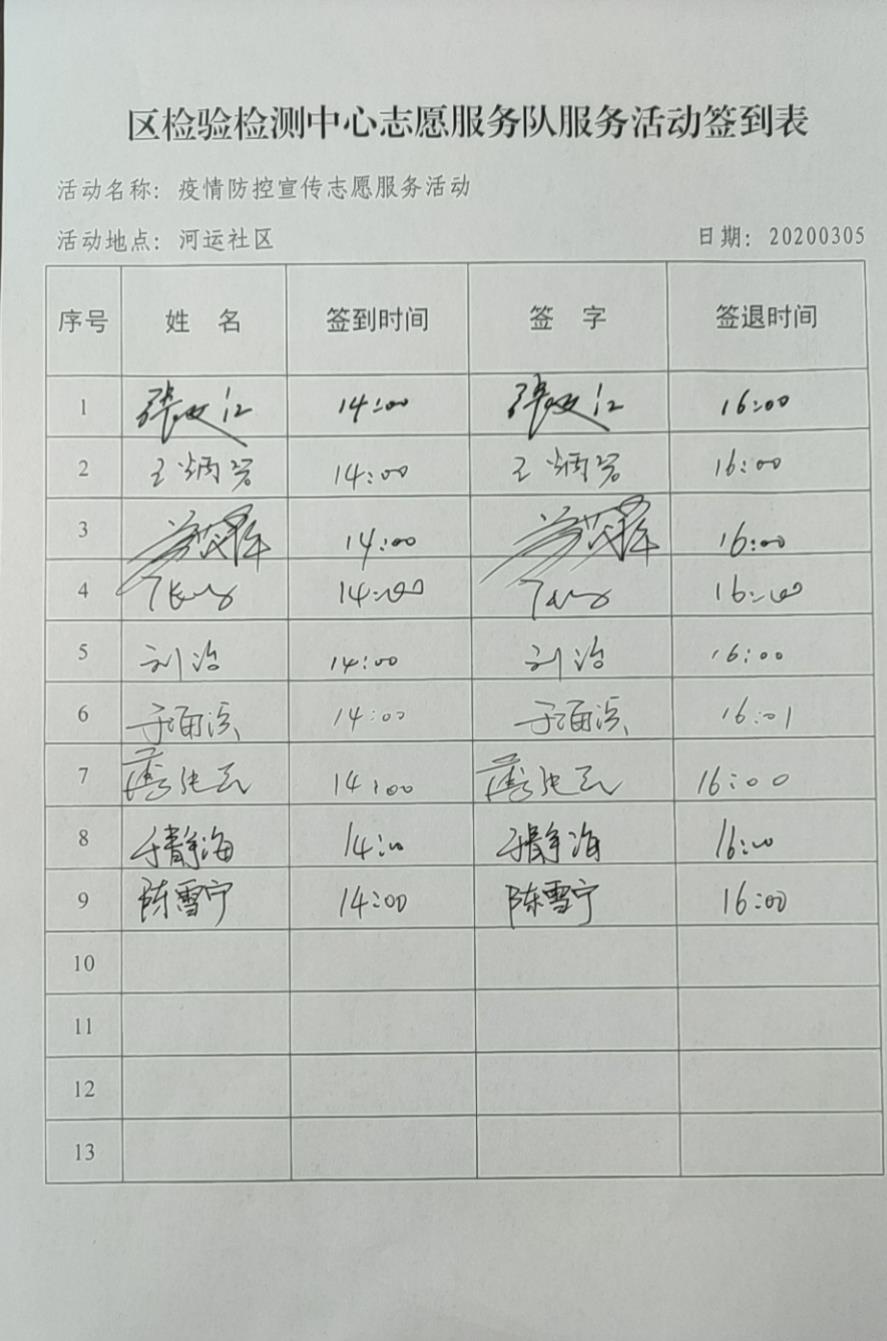 区检验检测中心志愿服务队服务活动签到表
活动名称：疫情防控宣传志愿服务活动
活动地点：河运社区 日期：20200305
序号 姓名 签到时间 签字 签退时间
1 14:00 16:00
2 14:00 16:00
3 14:00 16:00
4 14:00 16:00
5 刘治 14:00 刘治 16:00
6 14:00 16:01
7 14:00 16:00
8 于静海 14:00 于静海 16:00
9 陈雪宁 14:00 陈雪宁 16:00
10
11
12
13